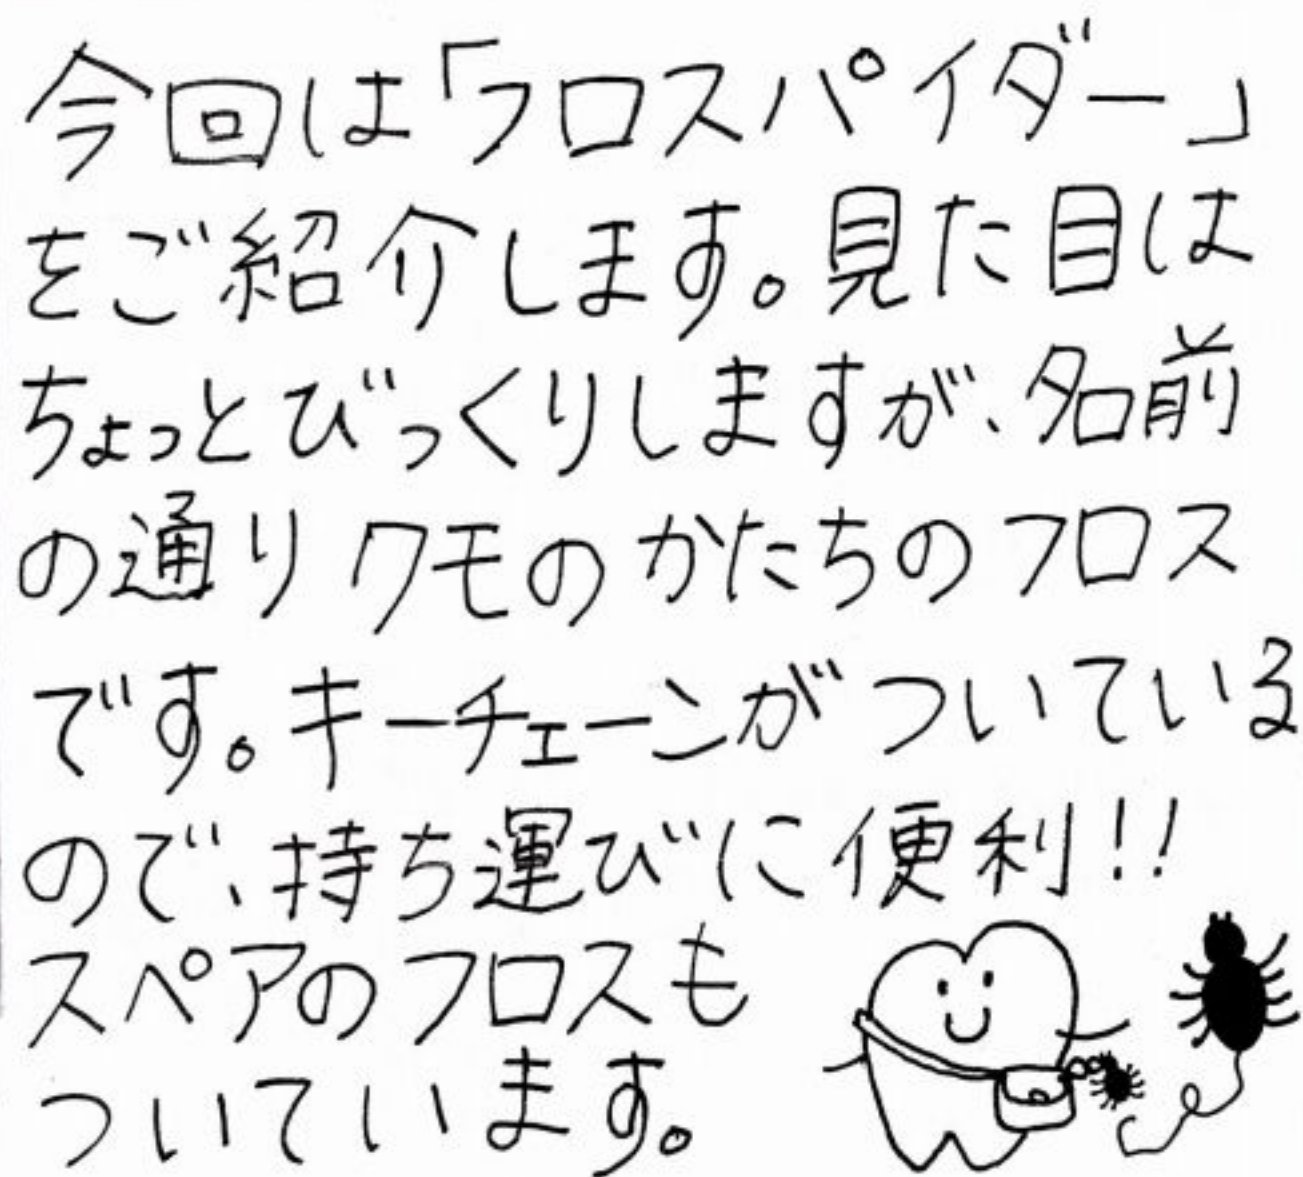 今回は「フロスパイダー」
をご紹介します。見た目は
ちょっとびっくりしますが、名前
の通りクモのかたちのフロス
です。キーチェーンがついている
ので、持ち運びに便利!!
スペアのフロスも
ついています。